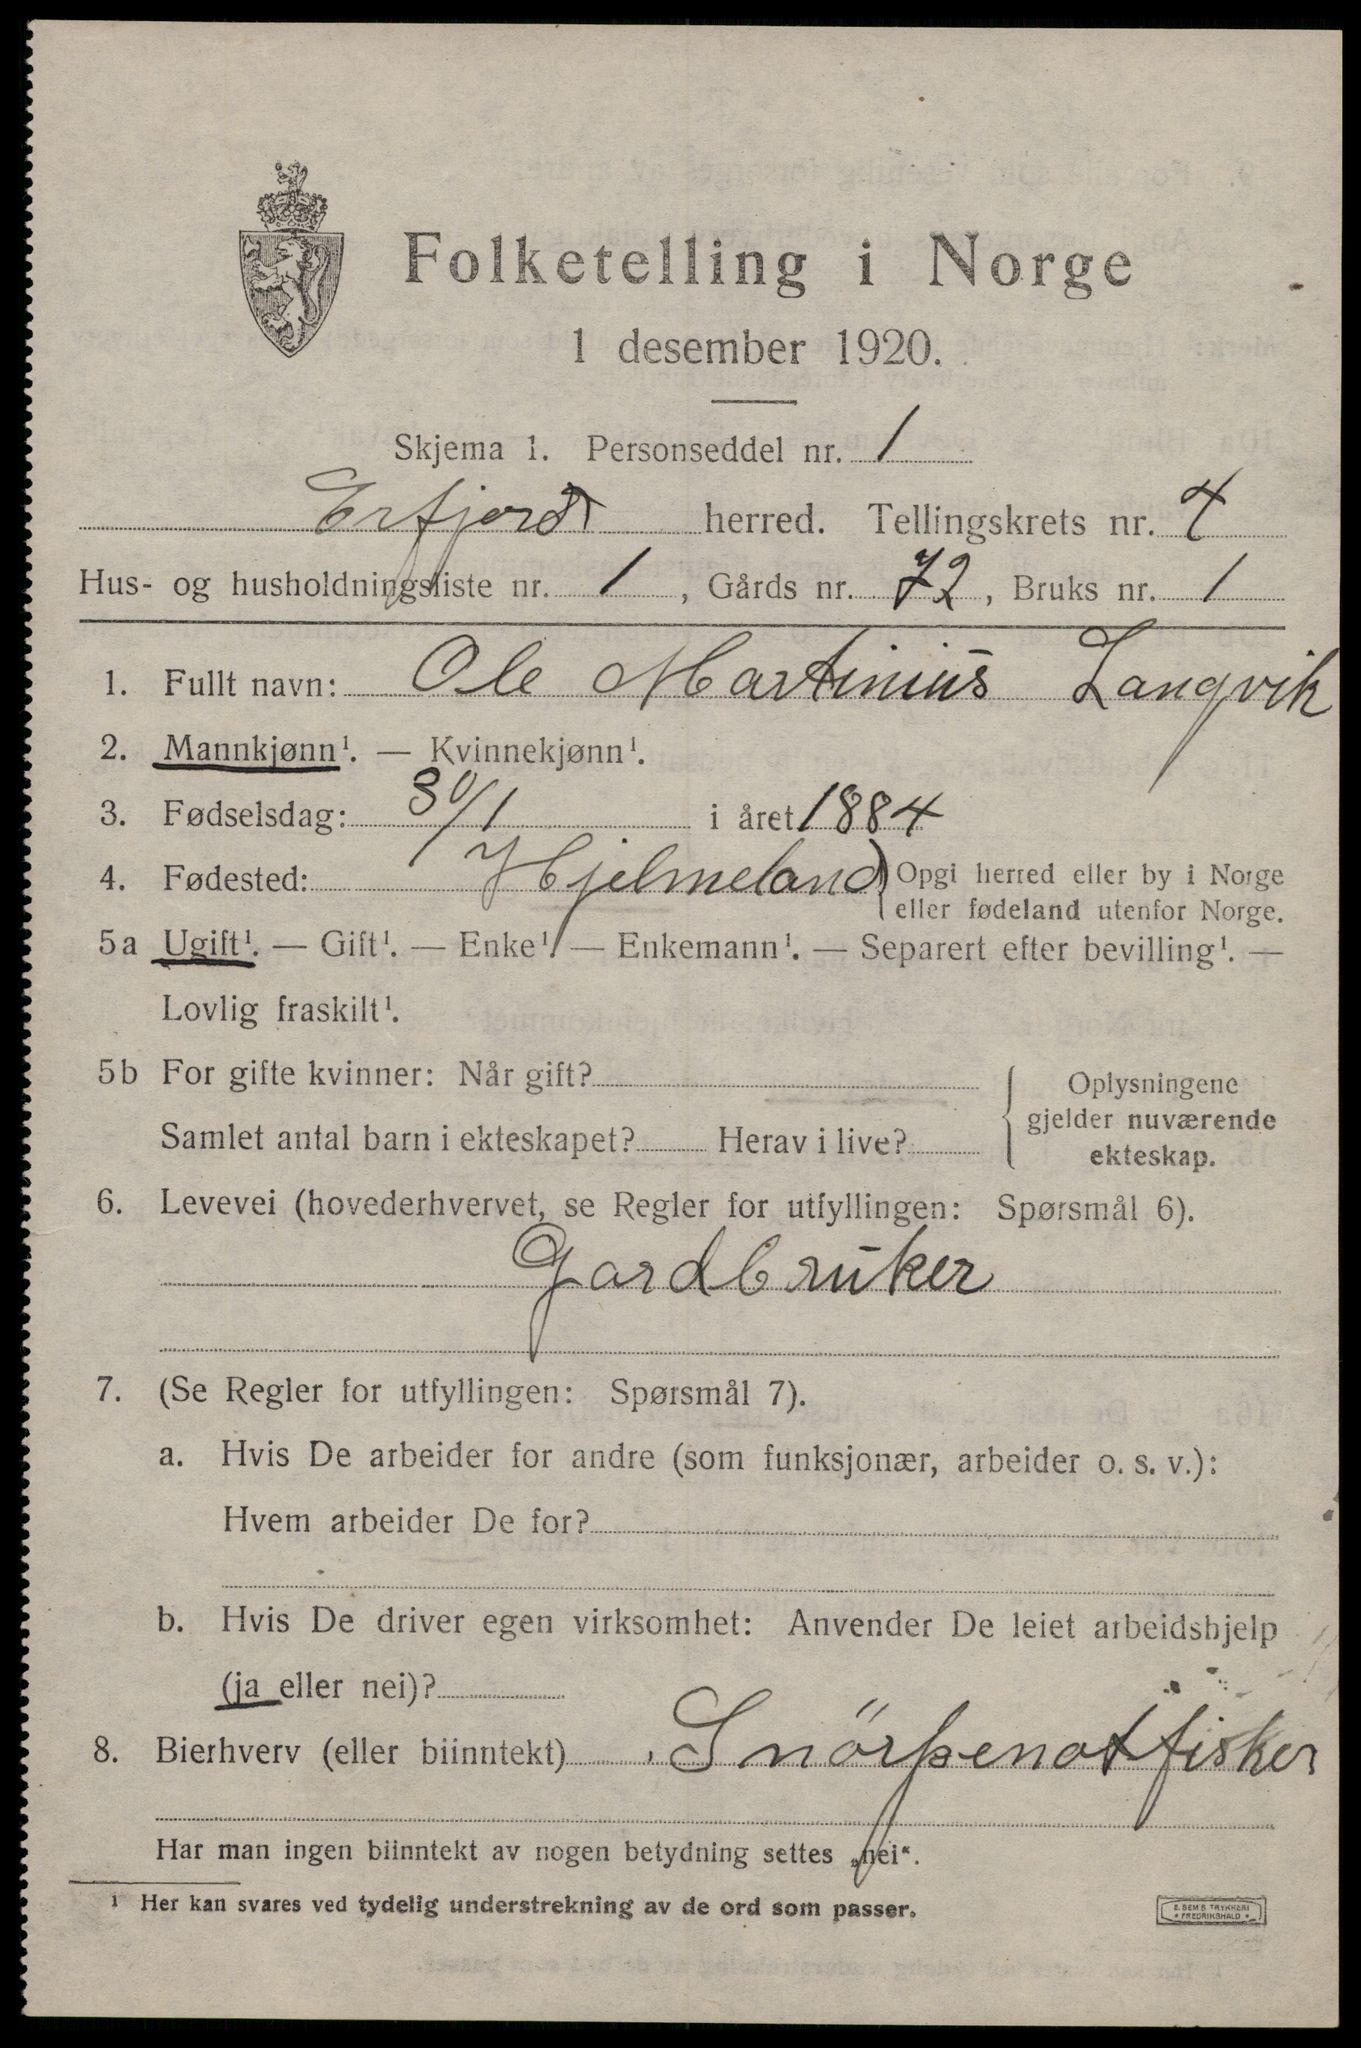 Folketelling i Norge
1 desember 1920.
Skjema 1. Personseddel nr. 1
Erfjord herred. Tellingskrets nr. 4
Hus- og husholdningsliste nr. 1, Gårds nr. 72, Bruks nr. 1
1. Fullt navn: Ole Martinius Langvik
2. Mannkjønn¹. — Kvinnekjønn¹.
3. Fødselsdag: 30/1 i året 1884
4. Fødested: Hjelmeland Opgi herred eller by i Norge
eller fødeland utenfor Norge.
5a Ugift¹. — Gift¹. — Enke¹. — Enkemann¹. — Separert efter bevilling¹. —
Lovlig fraskilt¹.
5b For gifte kvinner: Når gift?
Samlet antal barn i ekteskapet? Herav i live?
Oplysningene
gjelder nuværende
ekteskap.
6. Levevei (hovederhvervet, se Regler for utfyllingen: Spørsmål 6).
Gardbruker
7. (Se Regler for utfyllingen: Spørsmål 7).
a. Hvis De arbeider for andre (som funksjonær, arbeider o. s. v.):
Hvem arbeider De for?
b. Hvis De driver egen virksomhet: Anvender De leiet arbeidshjelp
(ja eller nei)?
8. Bierhverv (eller biinntekt) Snörpenotfisker
Har man ingen biinntekt av nogen betydning settes „nei“.
¹ Her kan svares ved tydelig understrekning av de ord som passer.
E. SEM'S TRYKKERI
* FREDRIKSHALD *